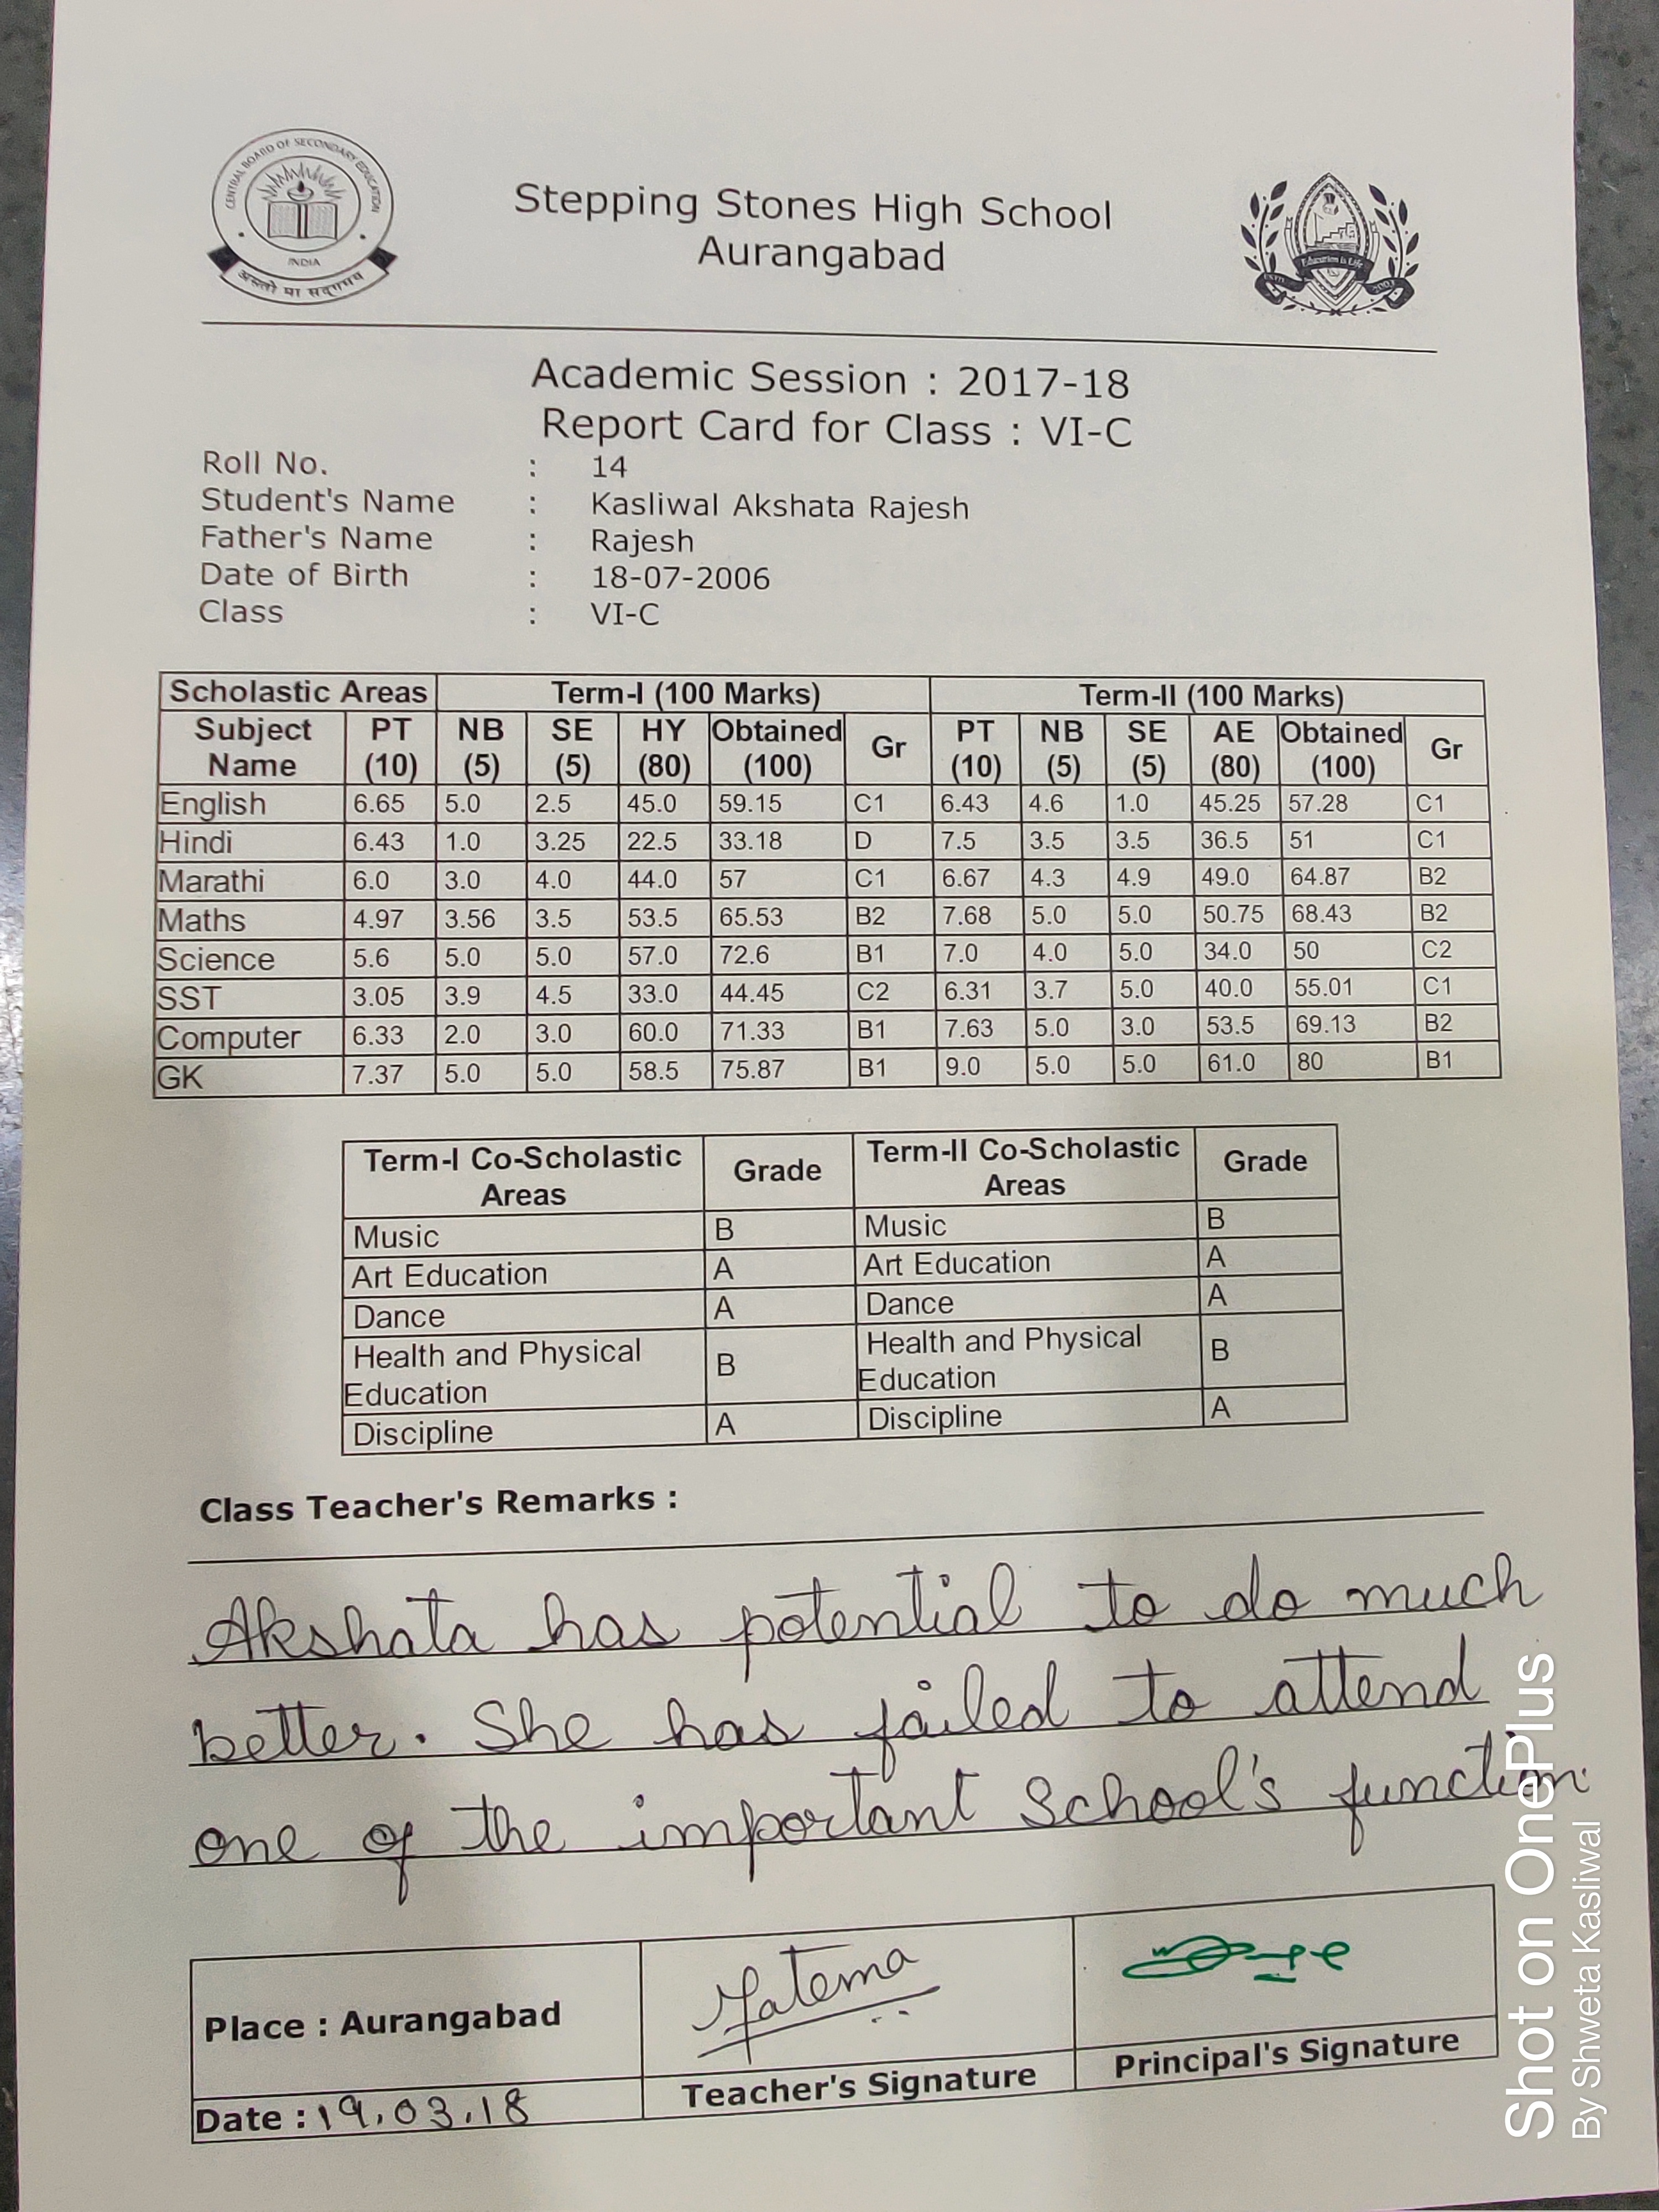 CENTRAL BOARD OF SECONDARY EDUCATION
INDIA
असतो मा सद्गमय
Stepping Stones High School
Aurangabad
Education is Life
ESTD 2003
Academic Session : 2017-18
Report Card for Class : VI-C
Roll No. : 14
Student's Name : Kasliwal Akshata Rajesh
Father's Name : Rajesh
Date of Birth : 18-07-2006
Class : VI-C
Scholastic Areas Term-I (100 Marks) Term-II (100 Marks)
Subject Name PT (10) NB (5) SE (5) HY (80) Obtained (100) Gr PT (10) NB (5) SE (5) AE (80) Obtained (100) Gr
English 6.65 5.0 2.5 45.0 59.15 C1 6.43 4.6 1.0 45.25 57.28 C1
Hindi 6.43 1.0 3.25 22.5 33.18 D 7.5 3.5 3.5 36.5 51 C1
Marathi 6.0 3.0 4.0 44.0 57 C1 6.67 4.3 4.9 49.0 64.87 B2
Maths 4.97 3.56 3.5 53.5 65.53 B2 7.68 5.0 5.0 50.75 68.43 B2
Science 5.6 5.0 5.0 57.0 72.6 B1 7.0 4.0 5.0 34.0 50 C2
SST 3.05 3.9 4.5 33.0 44.45 C2 6.31 3.7 5.0 40.0 55.01 C1
Computer 6.33 2.0 3.0 60.0 71.33 B1 7.63 5.0 3.0 53.5 69.13 B2
GK 7.37 5.0 5.0 58.5 75.87 B1 9.0 5.0 5.0 61.0 80 B1
Term-I Co-Scholastic Areas Grade Term-II Co-Scholastic Areas Grade
Music B Music B
Art Education A Art Education A
Dance A Dance A
Health and Physical Education B Health and Physical Education B
Discipline A Discipline A
Class Teacher's Remarks :
Akshata has potential to do much
better. She has failed to attend
one of the important School's function.
Place : Aurangabad
Fatema
Teacher's Signature
Principal's Signature
Date : 19.03.18
Shot on OnePlus
By Shweta Kasliwal